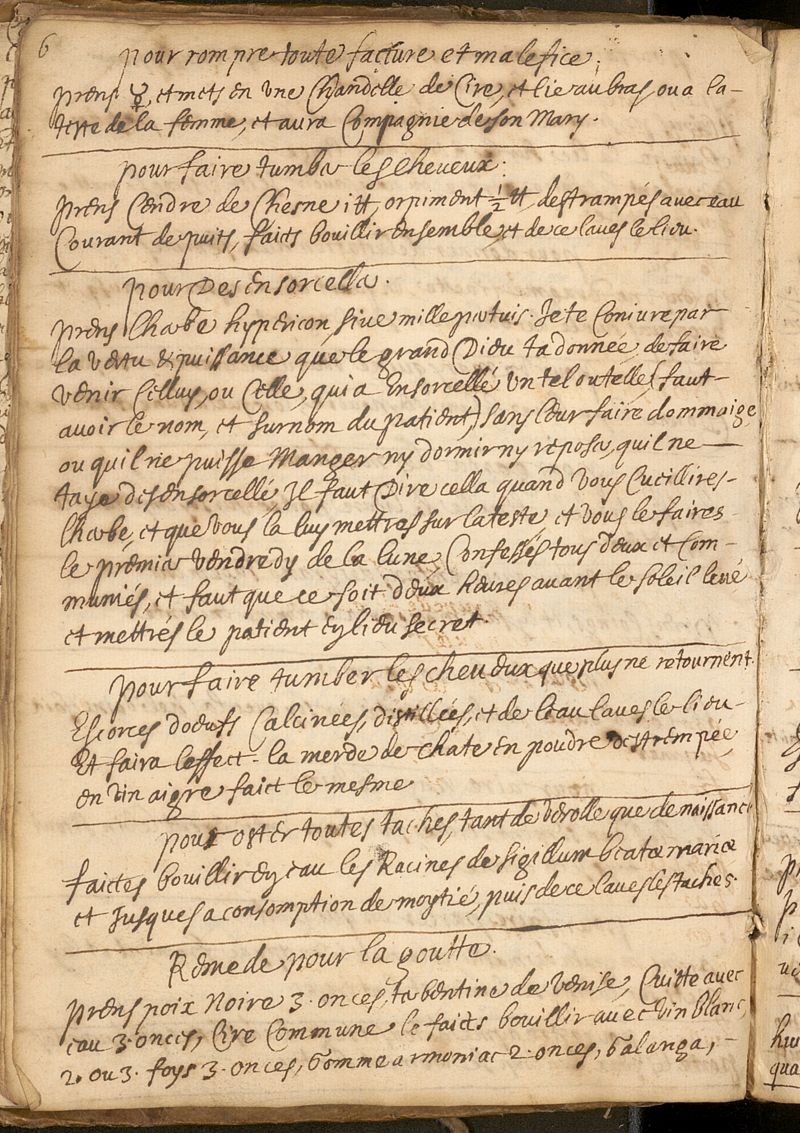 6
pour rompre toute facture et malefice.
prens ☿, et mets en une Chandelle de Cire, et lie au bras, ou a la-
teste de la femme, et aura Compagnie de son Mary.
pour faire tumber les cheveux.
prens Cendre de Chesne i ℔, orpiment ½ ℔, destrampés avec eau
Courant de puits, faicts bouillir ensemble, et de ce lavés le lieu.
pour Desensorceller.
prens l'herbe hypericon, sive mille pertuis. Je te Coniure par
la vertu & puissance que le grand Dieu ta donnée, de faire
venir Celluy, ou Celle, qui a Ensorcellé Un tel ou telle (faut-
avoir le nom, et surnom du patient,) sans leur faire dommaige
ou quil ne puisse Manger ny dormir ny reposer, quil ne
taye desensorcellé, Il faut Dire cella quand vous Cueillires-
lherbe, et que vous la luy mettres sur la teste, et vous le faires-
le premier vendredy de la lune, Confessés tous deux et Com-
muniés, et faut que ce soit deux heures avant le soleil levé
et mettrés le patient En lieu secret.
pour faire tumber les cheveux que plus ne retournent.
Escorces doeufs Calcinées, distillées, et de leau laves le lieu-
Et faira leffect. la merde de chate en poudre destrempée,
en vin aigre faict le mesme
pour oster toutes taches, tant de verolle que de naissance
faictes bouillir En eau les Racines de sigillum beatæ mariæ
et Jusques a consomption de moytié, puis de ce laves les taches.
Remede pour la goutte.
prens poix Noire 3. onces, terbentine de venise, Cuitte avec
eau 3. onces, Cire Commune le faicts bouillir avec vin blanc,
2. ou 3. foys 3. onces, Gomme armoniac 2. onces, Galanga, -